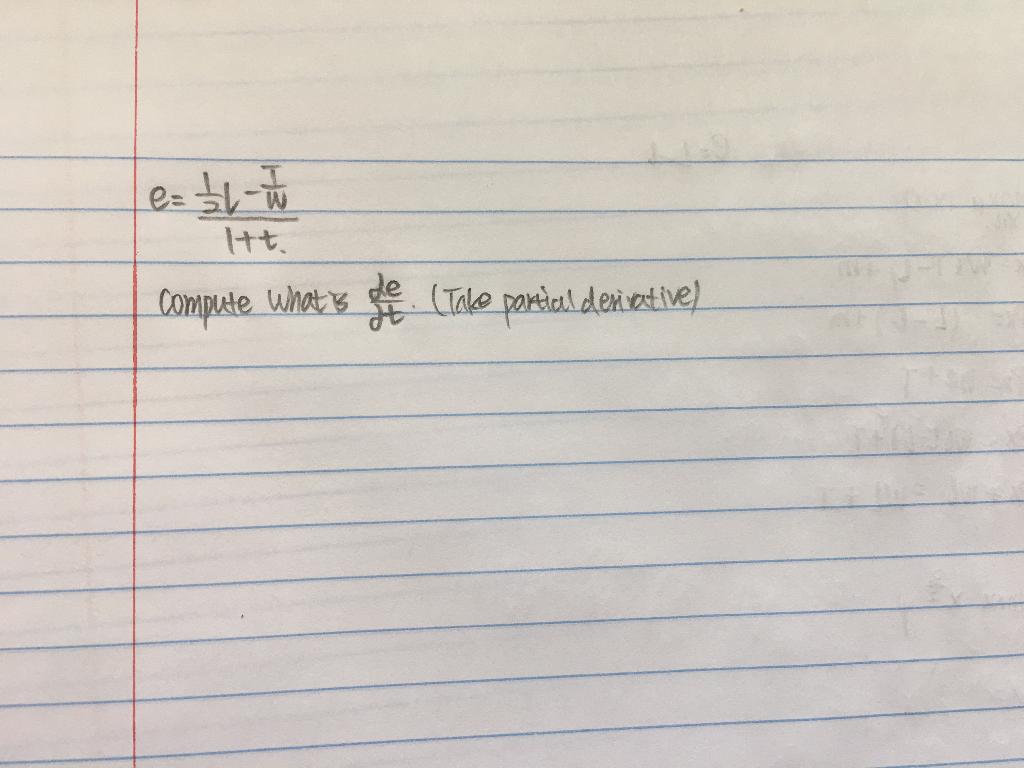 e = (1/2 l - T/W) / (1+t.)
Compute what is ∂e/∂t. (Take partial derivative)